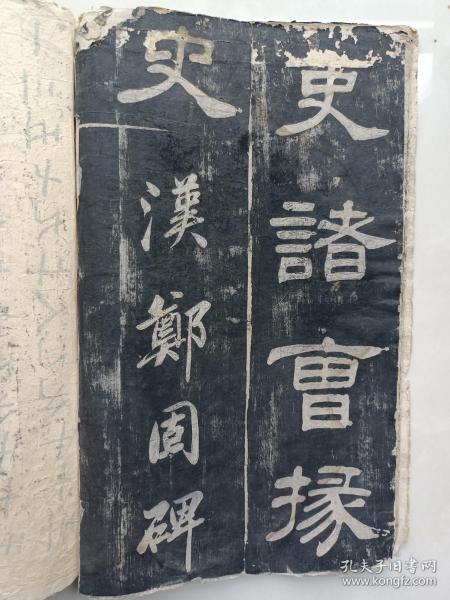 吏諸曹掾
史
漢鄭固碑
孔夫子旧书网
www.kongfz.com